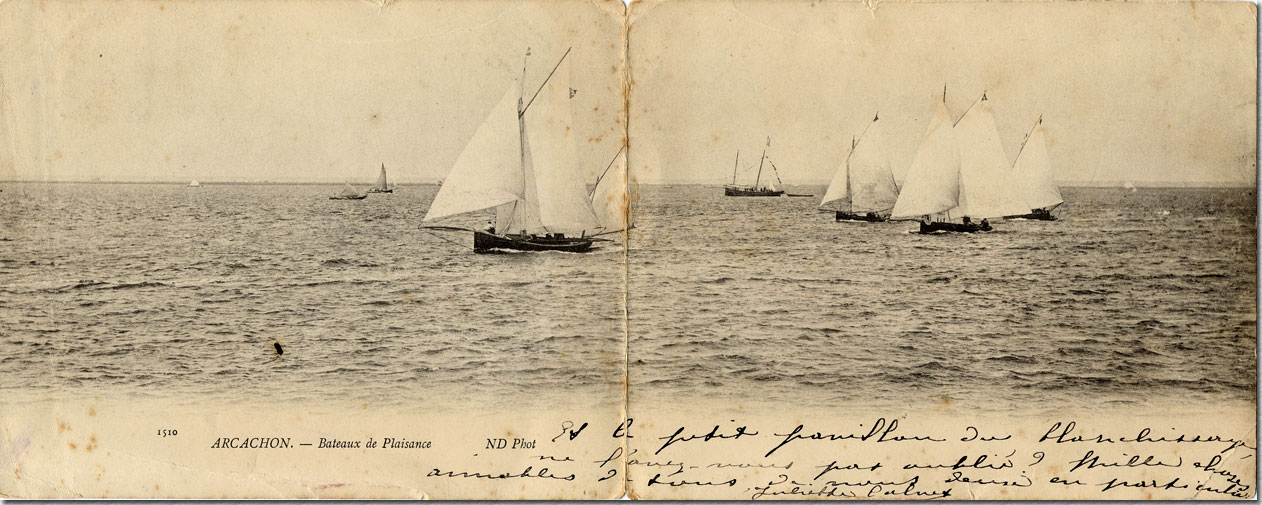 1510
ARCACHON. — Bateaux de Plaisance
ND Phot
Et le petit pavillon du blanchissage
ne l'avez-vous pas oublié? Mille choses
aimables à tous de nous deux en particulier
Juliette Calvet